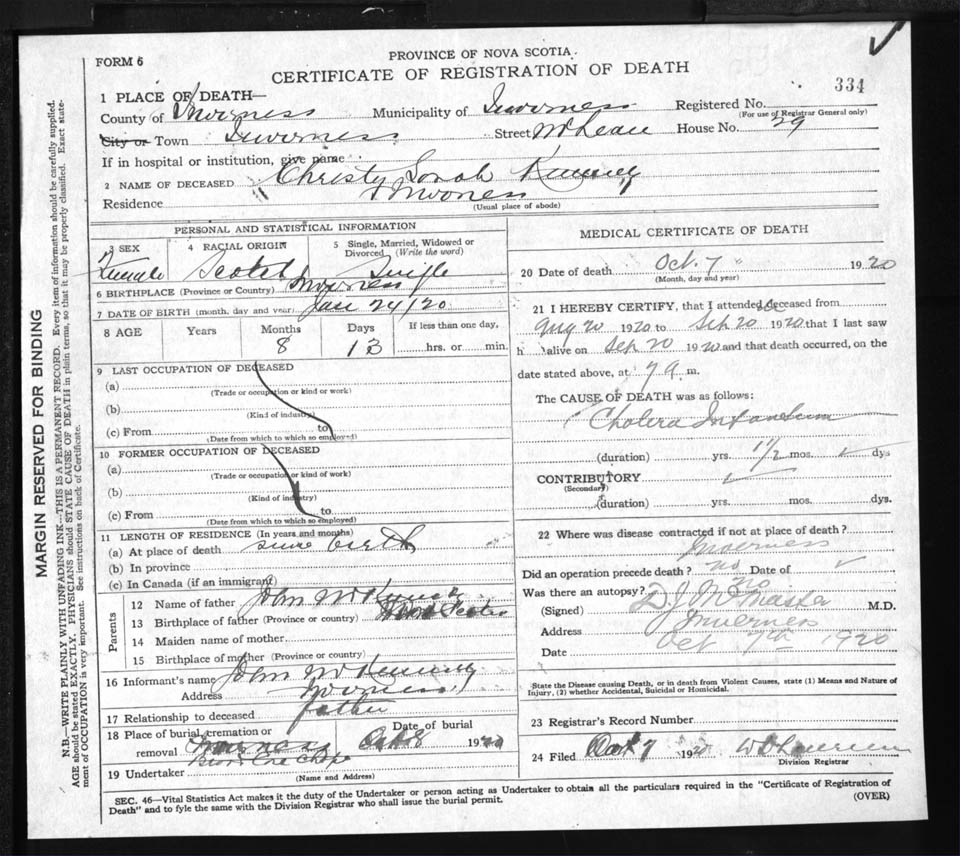 FORM 6
PROVINCE OF NOVA SCOTIA.
CERTIFICATE OF REGISTRATION OF DEATH
334
1 PLACE OF DEATH—
County of Inverness Municipality of Inverness Registered No.
(For use of Registrar General only)
City or Town Inverness Street McLean House No. 29
If in hospital or institution, give name
2 NAME OF DECEASED Christy Sarah
Residence Inverness
(Usual place of abode)
PERSONAL AND STATISTICAL INFORMATION
3 SEX 4 RACIAL ORIGIN 5 Single, Married, Widowed or Divorced (Write the word)
Female Scotch Single
6 BIRTHPLACE (Province or Country) Inverness
7 DATE OF BIRTH (month, day and year) Jan 24/20
8 AGE Years Months Days If less than one day,
8 13 hrs. or min.
9 LAST OCCUPATION OF DECEASED
(a)
(Trade or occupation or kind or work)
(b)
(Kind of industry)
(c) From to
(Date from which to which so employed)
10 FORMER OCCUPATION OF DECEASED
(a)
(Trade or occupation or kind of work)
(b)
(Kind of industry)
(c) From to
(Date from which to which so employed)
11 LENGTH OF RESIDENCE (In years and months)
(a) At place of death since birth
(b) In province
(c) In Canada (if an immigrant)
Parents
12 Name of father John
13 Birthplace of father (Province or country) Nova Scotia
14 Maiden name of mother
15 Birthplace of mother (Province or country)
16 Informant's name John
Address Inverness
17 Relationship to deceased father
18 Place of burial, cremation or removal Date of burial
Oct 8 1920
19 Undertaker
(Name and Address)
MEDICAL CERTIFICATE OF DEATH
20 Date of death Oct. 7 " 1920
(Month, day and year)
21 I HEREBY CERTIFY, that I attended deceased from
Aug 20 1920 to Sep 20 1920 that I last saw
h alive on Sep 20 1920 and that death occurred, on the
date stated above, at 7 a m.
The CAUSE OF DEATH was as follows:
Cholera Infantum
(duration) yrs. 1½ mos. dys
CONTRIBUTORY
(Secondary)
(duration) yrs. mos. dys.
22 Where was disease contracted if not at place of death?
Inverness
Did an operation precede death? no Date of
Was there an autopsy? no
(Signed) D J McMaster M.D.
Address Inverness
Date Oct 7th 1920
State the Disease causing Death, or in death from Violent Causes, state (1) Means and Nature of
Injury, (2) whether Accidental, Suicidal or Homicidal.
23 Registrar's Record Number
24 Filed Oct 7 1920
Division Registrar
SEC. 46—Vital Statistics Act makes it the duty of the Undertaker or person acting as Undertaker to obtain all the particulars required in the "Certificate of Registration of
Death" and to fyle the same with the Division Registrar who shall issue the burial permit.
(OVER)
MARGIN RESERVED FOR BINDING
N.B.—WRITE PLAINLY WITH UNFADING INK—THIS IS A PERMANENT RECORD. Every item of information should be carefully supplied.
AGE should be stated EXACTLY. PHYSICIANS should STATE CAUSE OF DEATH in plain terms, so that it may be properly classified. Exact state-
ment of OCCUPATION is very important. See instructions on back of Certificate.